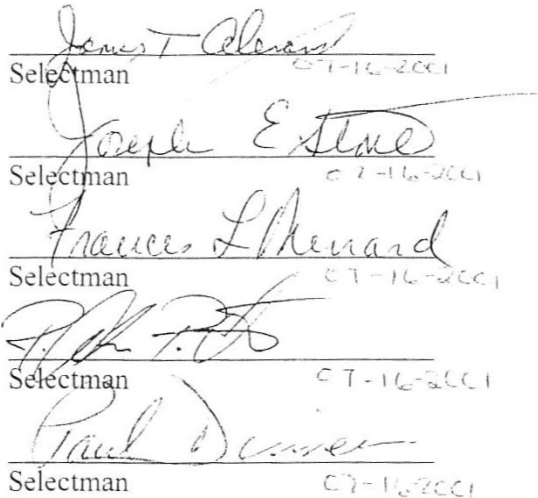 James T
Selectman 07-16-2001
Joseph E Stone
Selectman 07-16-2001
Frances L Menard
Selectman 07-16-2001
Selectman 07-16-2001
Paul
Selectman 07-16-2001